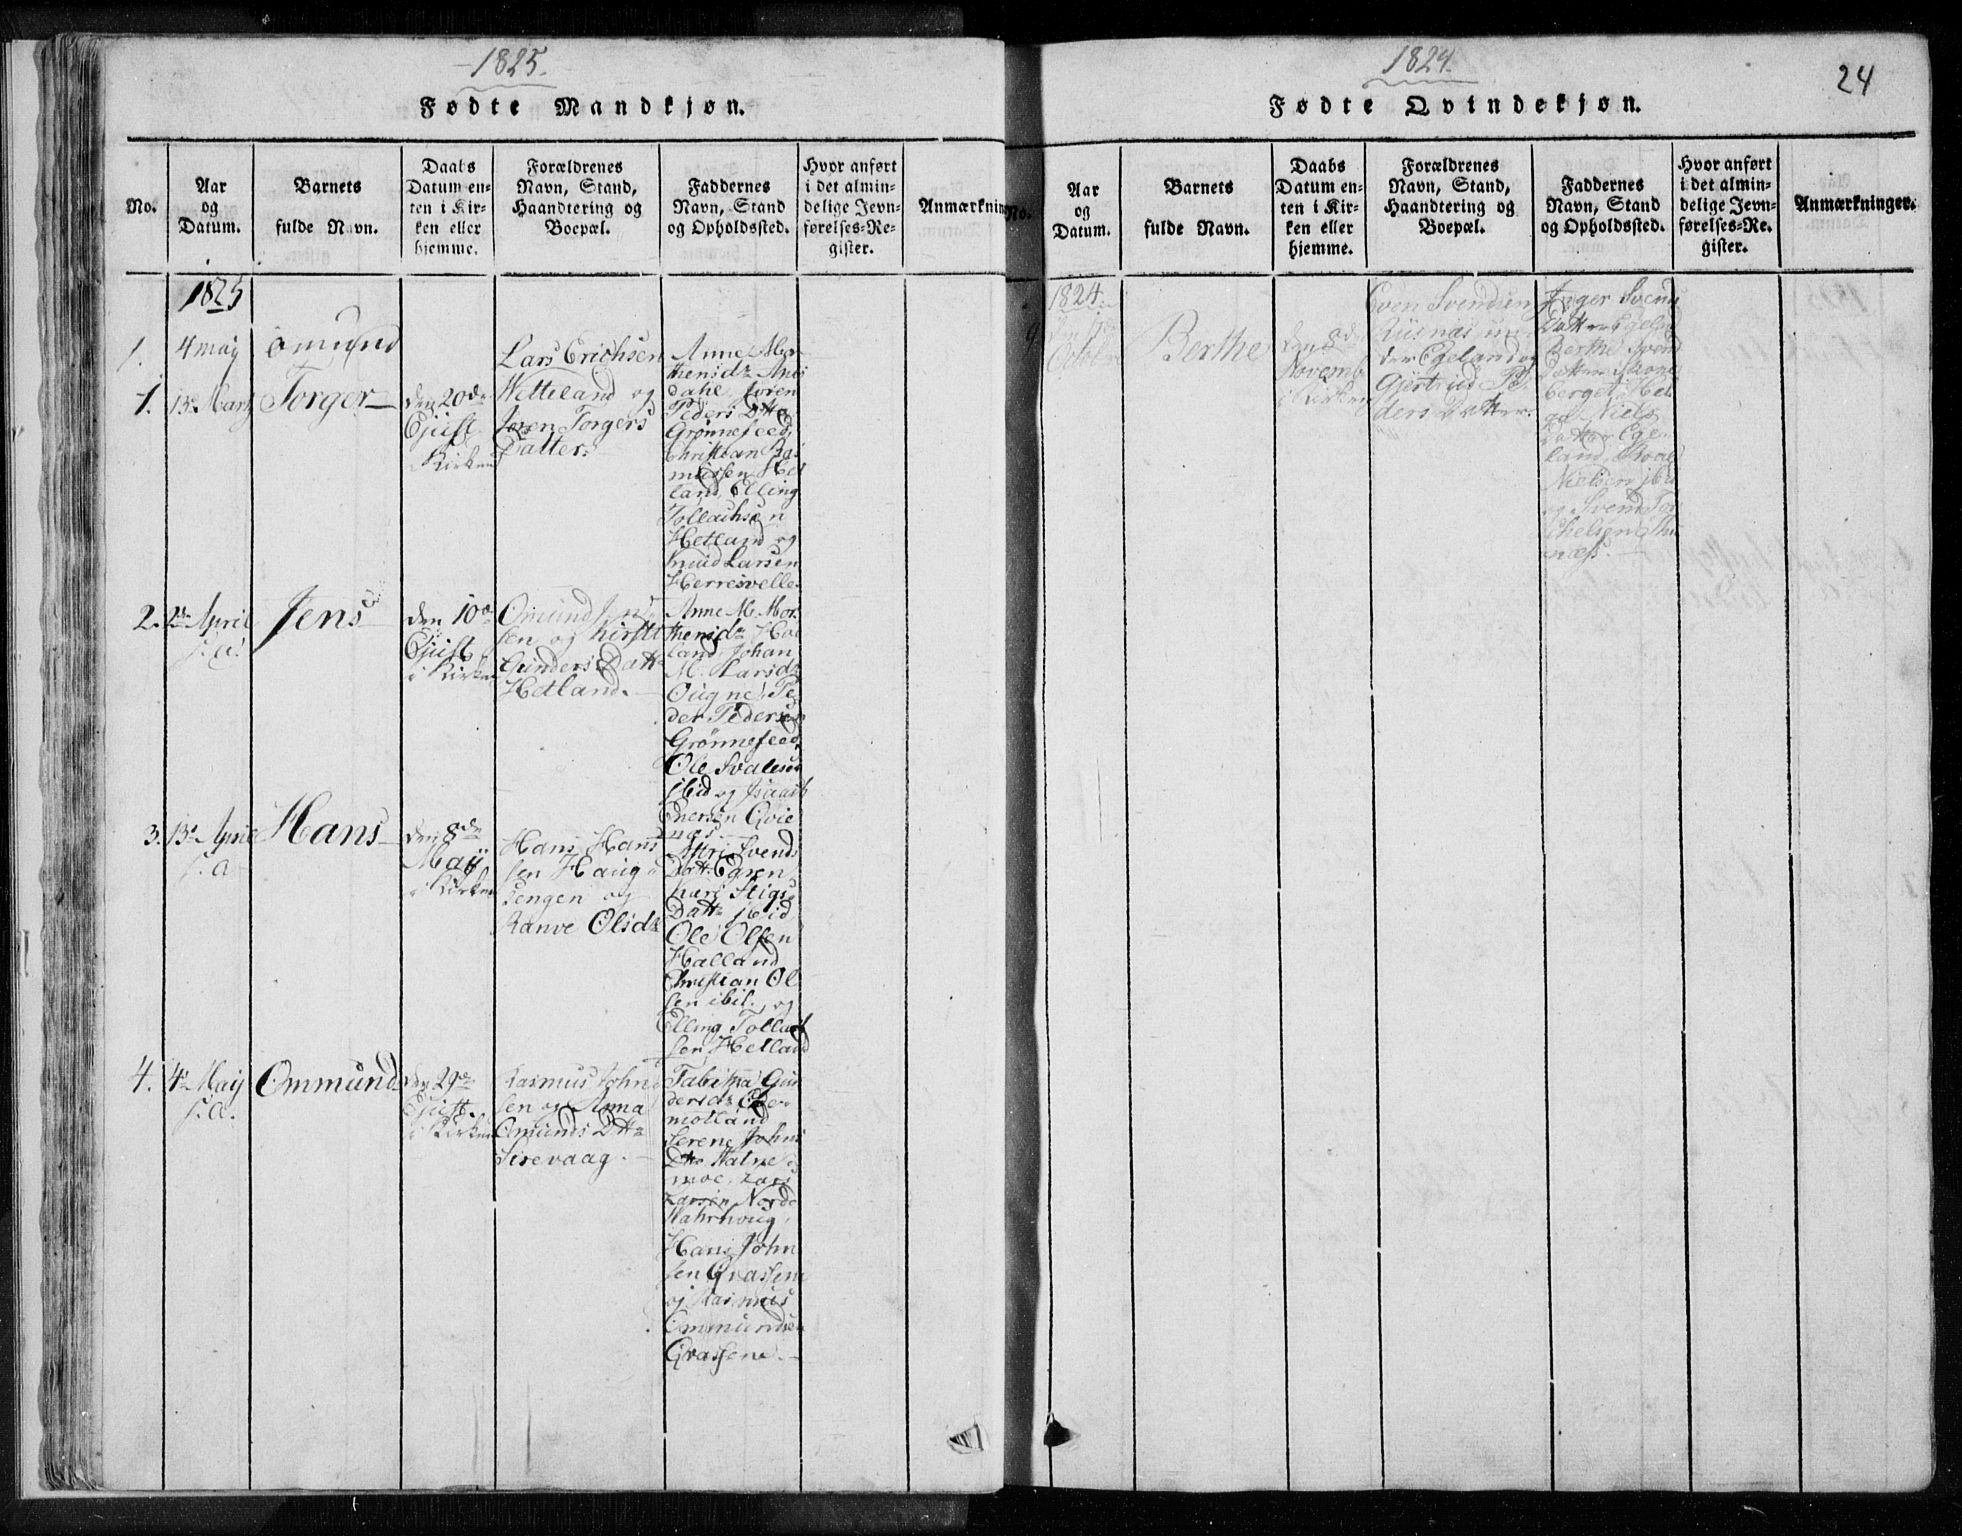 1825.
Fødte Mandkjøn.
No.
Aar
og
Datum.
Barnets
fulde Navn.
Daabs
Datum en-
ten i Kir-
ken eller
hjemme.
Forældrenes
Navn, Stand,
Haandtering og
Boepæl.
Faddernes
Navn, Stand
og Opholdssted.
Hvor anført
i det almin-
delige Jevn-
førelses-Re-
gister.
Anmærknin
1825
1.
4 may
omund
1.
13de Marts
Torger
den 20de
Ejusd.
i Kirken
Lars Erichsen
Wetteland og
Joren Torgers
Datter.
Anne
thensdr
dahl Joren
Peders Dtr
Grønnefeed,
Christian Ras
mussen Het
land, Elling
Tollachsen
Hetland og
Knud Larsen
Herresvelle
2.
April
s. a.
Jens
den 10de
Ejusd.
i Kirken
Omund Jen
sen og Kirsti
Gunders Datr
Hetland.
Anne M. Mor
thensdr
land, Johan
M. Larsdr
Ougne, Pe
der Pedersen
Grønnefeed,
Ole Svalesen
ibid og Isaach
Enersen Qvie
næs.
3.
13de April
s. a
Hans
den 8de
Maij
i Kirken
Hans Hans
sen Haug
sengen og
Ranve Olsdr
Siri Svends
Datr Egren
Stigs
Datr ibid
Ole Olsen
Halland
Christian Ol
sen ibid. og
Elling Tollaf
sen Hetland
4.
4de Maij
s. a.
Ommund
den 29de
Ejusd.
i Kirken
Rasmus John
sen og Anna
Omunds Dtr
Sirevaag.
Tabitha Gun
dersdr
motland
Serene Johns
Dtr
moe, Lars
Larsen Nordr
Hans John
sen Qvassem
og Rasmus
Ommundsen
Qvassem.
1824.
24
Fødte Qvindekjøn.
No.
Aar
og
Datum.
Barnets
fulde Navn.
Daabs
Datum en-
ten i Kir-
ken eller
hjemme.
Forældrenes
Navn, Stand,
Haandtering og
Boepæl.
Faddernes
Navn, Stand
og Opholdssted.
Hvor anført
i det almin-
delige Jevn-
førelses-Re-
gister.
Anmærkninger.
9
1824
Octobr
Berthe
den 8de
Novemb
i Kirken
Even Svendsen
Rusnæs un
der Egeland og
Gjertrud Pe
ders Datter.
Inger Svens
Datter Egelan
Berthe Svend
Datter
berget,
Niels
Datter Ege
land,
Nielsen ibid
og Svend Tor
chelsen
næs.